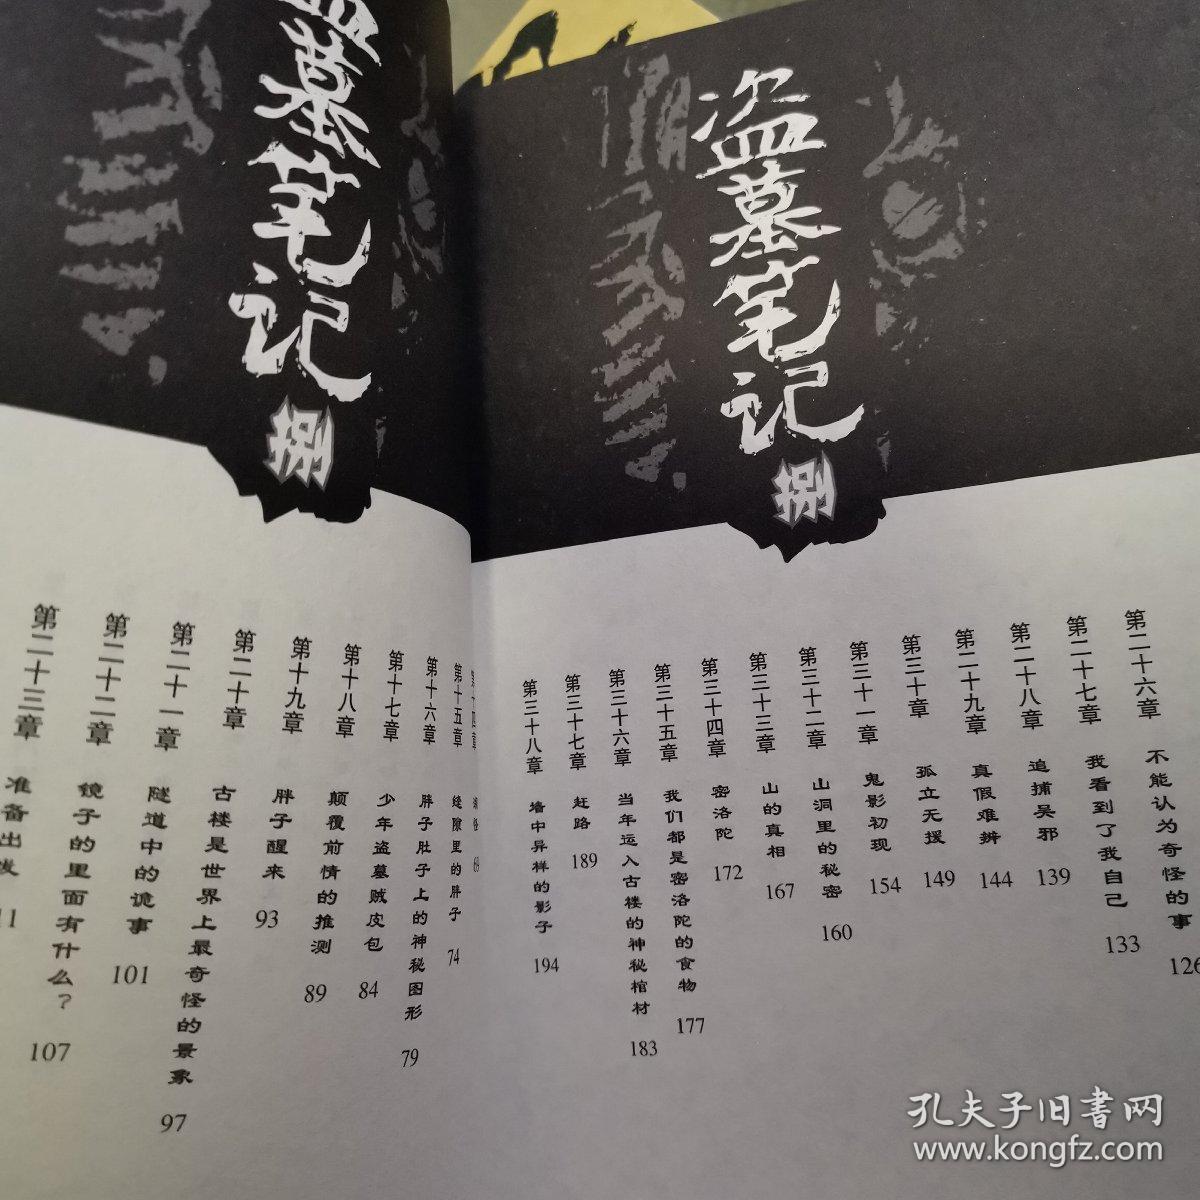 盗墓笔记
捌
第十五章 缝隙里的胖子 74
第十六章 胖子肚子上的神秘图形 79
第十七章 少年盗墓贼皮包 84
第十八章 颠覆前情的推测 89
第十九章 胖子醒来 93
第二十章 古楼是世界上最奇怪的景象 97
第二十一章 隧道中的诡事 101
第二十二章 镜子的里面有什么？ 107
第二十三章 准备出发
盗墓笔记
捌
第二十六章 不能认为奇怪的事 126
第二十七章 我看到了我自己 133
第二十八章 追捕吴邪 139
第二十九章 真假难辨 144
第三十章 孤立无援 149
第三十一章 鬼影初现 154
第三十二章 山洞里的秘密 160
第三十三章 山的真相 167
第三十四章 密洛陀 172
第三十五章 我们都是密洛陀的食物 177
第三十六章 当年运入古楼的神秘棺材 183
第三十七章 赶路 189
第三十八章 墙中异样的影子 194
孔夫子旧书网
www.kongfz.com